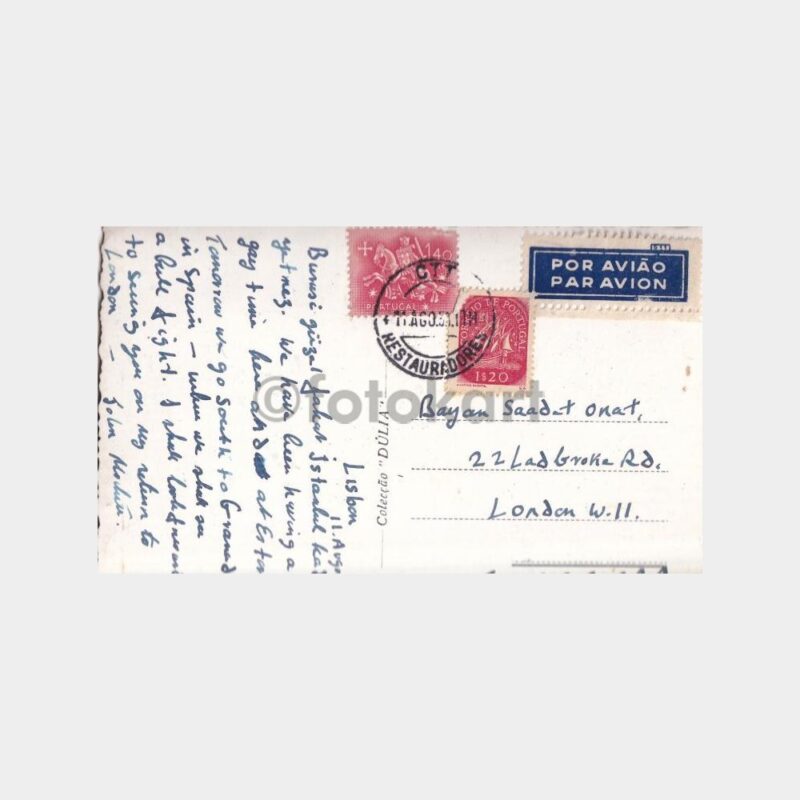 Lisbon
11. Aug
Burası güzel fakat İstanbul ka
yetmez. We have been having a
gay time here and at Estor
Tomorrow we go South to Granad
in Spain – where we shall see
a bull fight. I shall look forward
to seeing you on my return to
London –
John
140
PORTUGAL
CTT
11 AGO
RESTAURADORES
DE PORTUGAL
1$20
POR AVIÃO
PAR AVION
Colecção "DÚLIA"
Bayan Saadet Onat,
22 Ladbroke Rd.
London W.11.
©fotokart